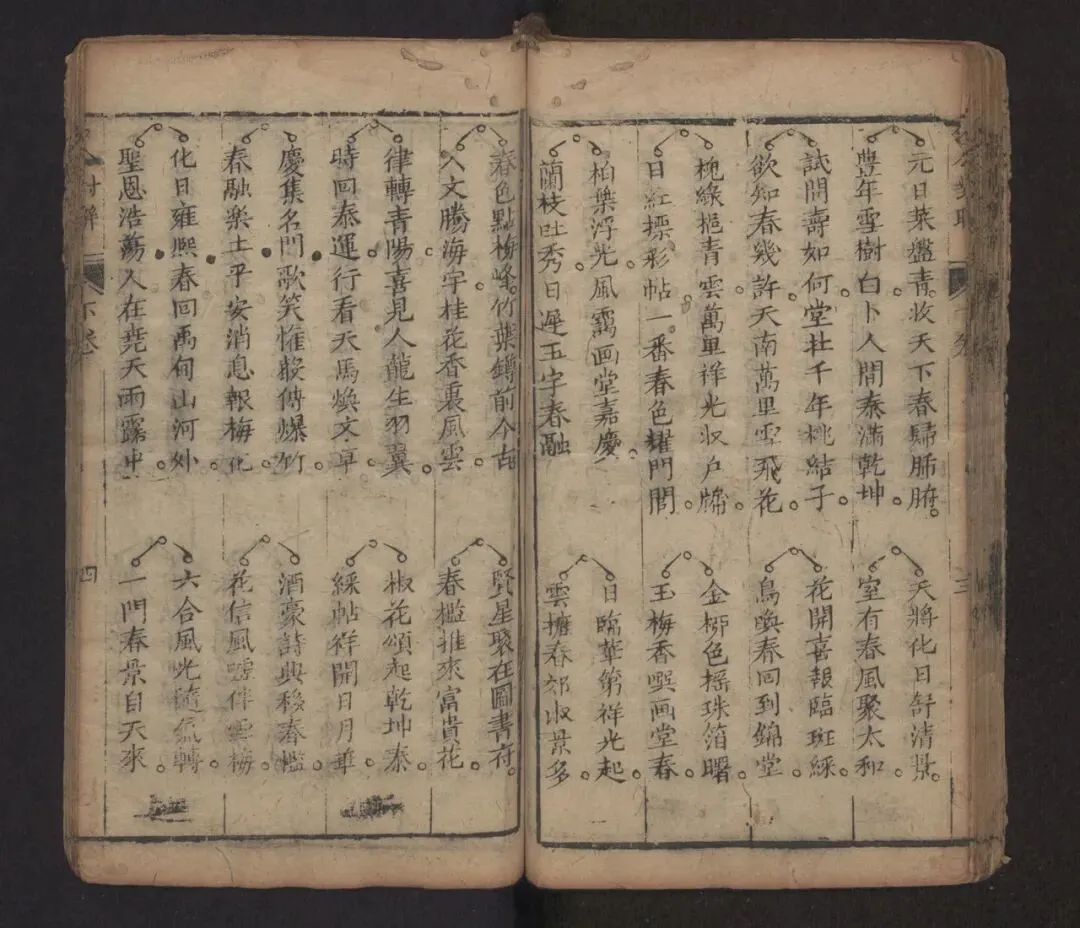 元日菜盤青收天下春歸肺腑
豊年雪樹白卜人間泰滿乾坤
試問壽如何堂社千年桃結子
欲知春幾許天南萬里雪飛花
槐綠挹青雲萬里祥光収户牖
日紅標彩帖一番春色耀門閭
柏葉浮光風靄画堂嘉慶
蘭枝吐秀日遲玉宇春融
天將化日舒清景
室有春風聚太和
花開喜報臨斑綵
鳥喚春回到錦堂
金柳色摇珠箔曙
玉梅香噀画堂春
日臨華第祥光起
雲擁春郊淑景多
春色點梅峰竹葉鐏前今古
人文騰海宇桂花香裏風雲
律轉青陽喜見人龍生羽翼
時回泰運行看天馬煥文章
慶集名門歌笑惟殽傳爆竹
春融楽土平安消息報梅花
化日雍熙春回禹甸山河外
聖恩浩蕩人在堯天雨露中
賢星聚在圖書府
春檻推來富貴花
椒花頌起乾坤泰
綵帖祥開日月華
酒豪詩興移春檻
花信風聲伴雪梅
六合風光隨氣轉
一門春景自天來
下卷
四
三